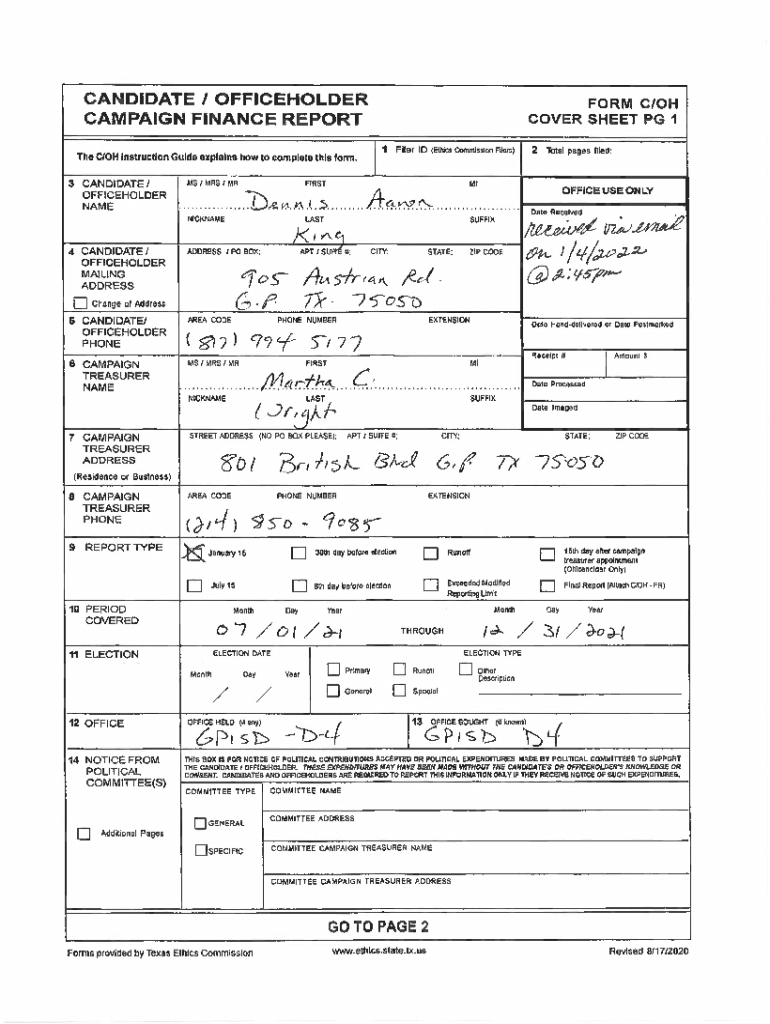 CANDIDATE / OFFICEHOLDER
CAMPAIGN FINANCE REPORT
FORM C/OH
COVER SHEET PG 1
The C/OH Instruction Guide explains how to complete this form.
1 Filer ID (Ethics Commission Filers)
2 Total pages filed:
3 CANDIDATE /
OFFICEHOLDER
NAME
MS / MRS / MR FIRST MI
Dennis Aaron
NICKNAME LAST SUFFIX
King
OFFICE USE ONLY
Date Received
received via email
on 1/4/2022
@ 2:45pm
4 CANDIDATE /
OFFICEHOLDER
MAILING
ADDRESS
Change of Address
ADDRESS / PO BOX; APT / SUITE #; CITY; STATE; ZIP CODE
905 Austrian Rd.
G.P. TX. 75050
5 CANDIDATE/
OFFICEHOLDER
PHONE
AREA CODE PHONE NUMBER EXTENSION
(817) 994-5177
Date Hand-delivered or Date Postmarked
Receipt # Amount $
Date Processed
Date Imaged
6 CAMPAIGN
TREASURER
NAME
MS / MRS / MR FIRST MI
Martha C.
NICKNAME LAST SUFFIX
Wright
7 CAMPAIGN
TREASURER
ADDRESS
(Residence or Business)
STREET ADDRESS (NO PO BOX PLEASE); APT / SUITE #; CITY; STATE; ZIP CODE
801 British Blvd G.P. TX 75050
8 CAMPAIGN
TREASURER
PHONE
AREA CODE PHONE NUMBER EXTENSION
(214) 850-9085
9 REPORT TYPE
January 15
30th day before election
Runoff
15th day after campaign
treasurer appointment
(Officeholder Only)
July 15
8th day before election
Exceeded Modified
Reporting Limit
Final Report (Attach C/OH - FR)
10 PERIOD
COVERED
Month Day Year
07 / 01 / 21
THROUGH
Month Day Year
12 / 31 / 2021
11 ELECTION
ELECTION DATE
Month Day Year
/ /
ELECTION TYPE
Primary
Runoff
Other
Description
General
Special
12 OFFICE
OFFICE HELD (if any)
GPISD -D-4
13 OFFICE SOUGHT (if known)
GPISD D4
14 NOTICE FROM
POLITICAL
COMMITTEE(S)
THIS BOX IS FOR NOTICE OF POLITICAL CONTRIBUTIONS ACCEPTED OR POLITICAL EXPENDITURES MADE BY POLITICAL COMMITTEES TO SUPPORT
THE CANDIDATE / OFFICEHOLDER. THESE EXPENDITURES MAY HAVE BEEN MADE WITHOUT THE CANDIDATE'S OR OFFICEHOLDER'S KNOWLEDGE OR
CONSENT. CANDIDATES AND OFFICEHOLDERS ARE REQUIRED TO REPORT THIS INFORMATION ONLY IF THEY RECEIVE NOTICE OF SUCH EXPENDITURES.
COMMITTEE TYPE
COMMITTEE NAME
GENERAL
COMMITTEE ADDRESS
Additional Pages
SPECIFIC
COMMITTEE CAMPAIGN TREASURER NAME
COMMITTEE CAMPAIGN TREASURER ADDRESS
GO TO PAGE 2
Forms provided by Texas Ethics Commission
www.ethics.state.tx.us
Revised 8/17/2020